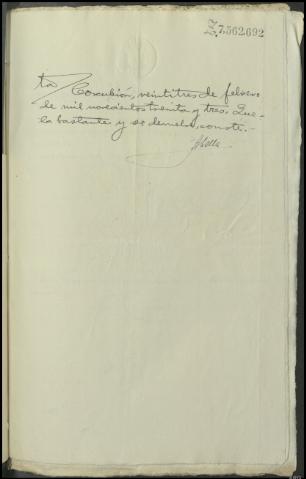 Z.7.562.692
ta/ Corcubión, veintitres de febrero
de mil novecientos treinta y tres. Que-
la bastante y se devuelve, consta.-